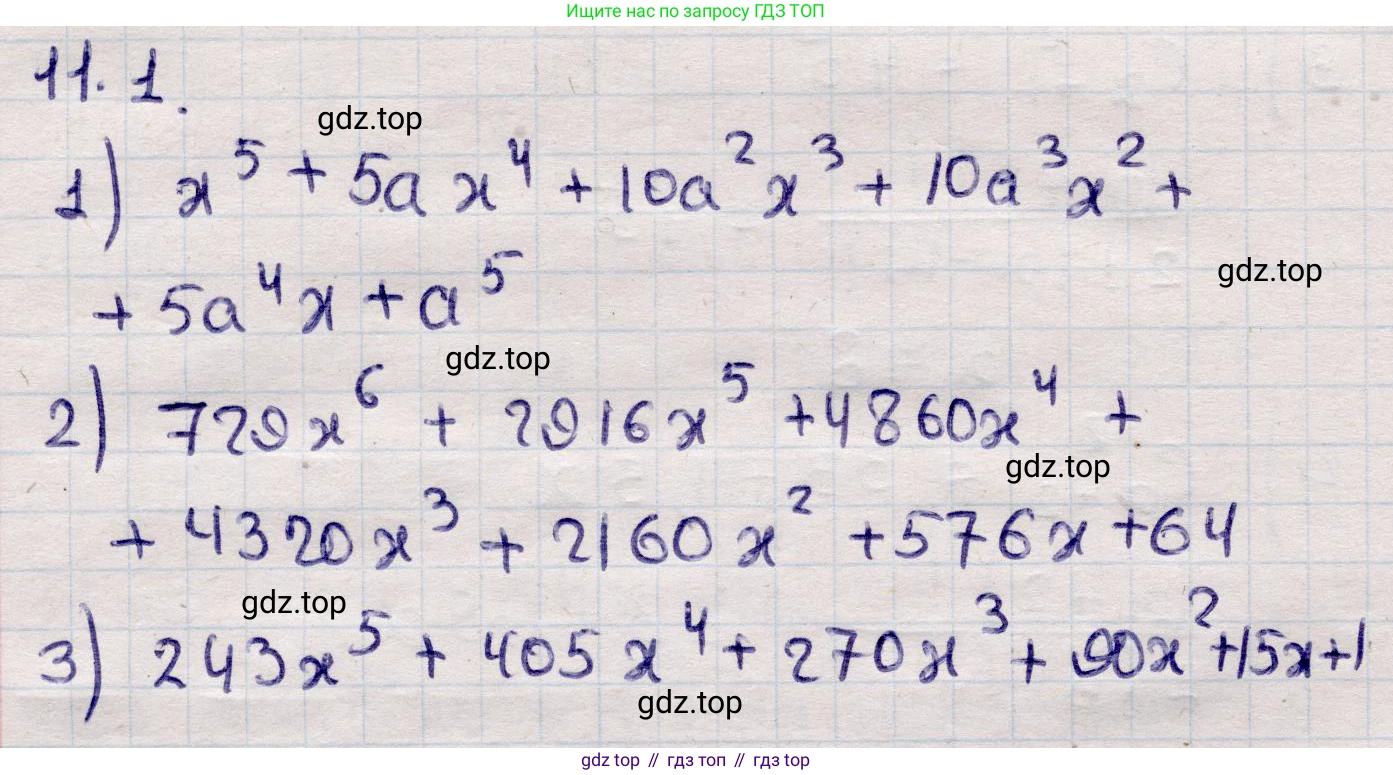 Ищите нас по запросу ГДЗ ТОП
11.1.
gdz.top
1) x⁵ + 5ax⁴ + 10a²x³ + 10a³x² +
gdz.top
+ 5a⁴x + a⁵
gdz.top
2) 729x⁶ + 2916x⁵ + 4860x⁴ +
gdz.top
+ 4320x³ + 2160x² + 576x + 64
gdz.top
3) 243x⁵ + 405x⁴ + 270x³ + 90x² + 15x + 1
gdz.top
gdz top // гдз топ // гдз top